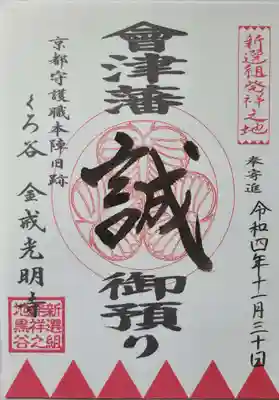 新選組発祥之地
奉寄進
令和四年十一月三十日
會津藩
誠
御預り
京都守護職本陣旧跡
くろ谷 金戒光明寺
新選組
発祥之
地黒谷